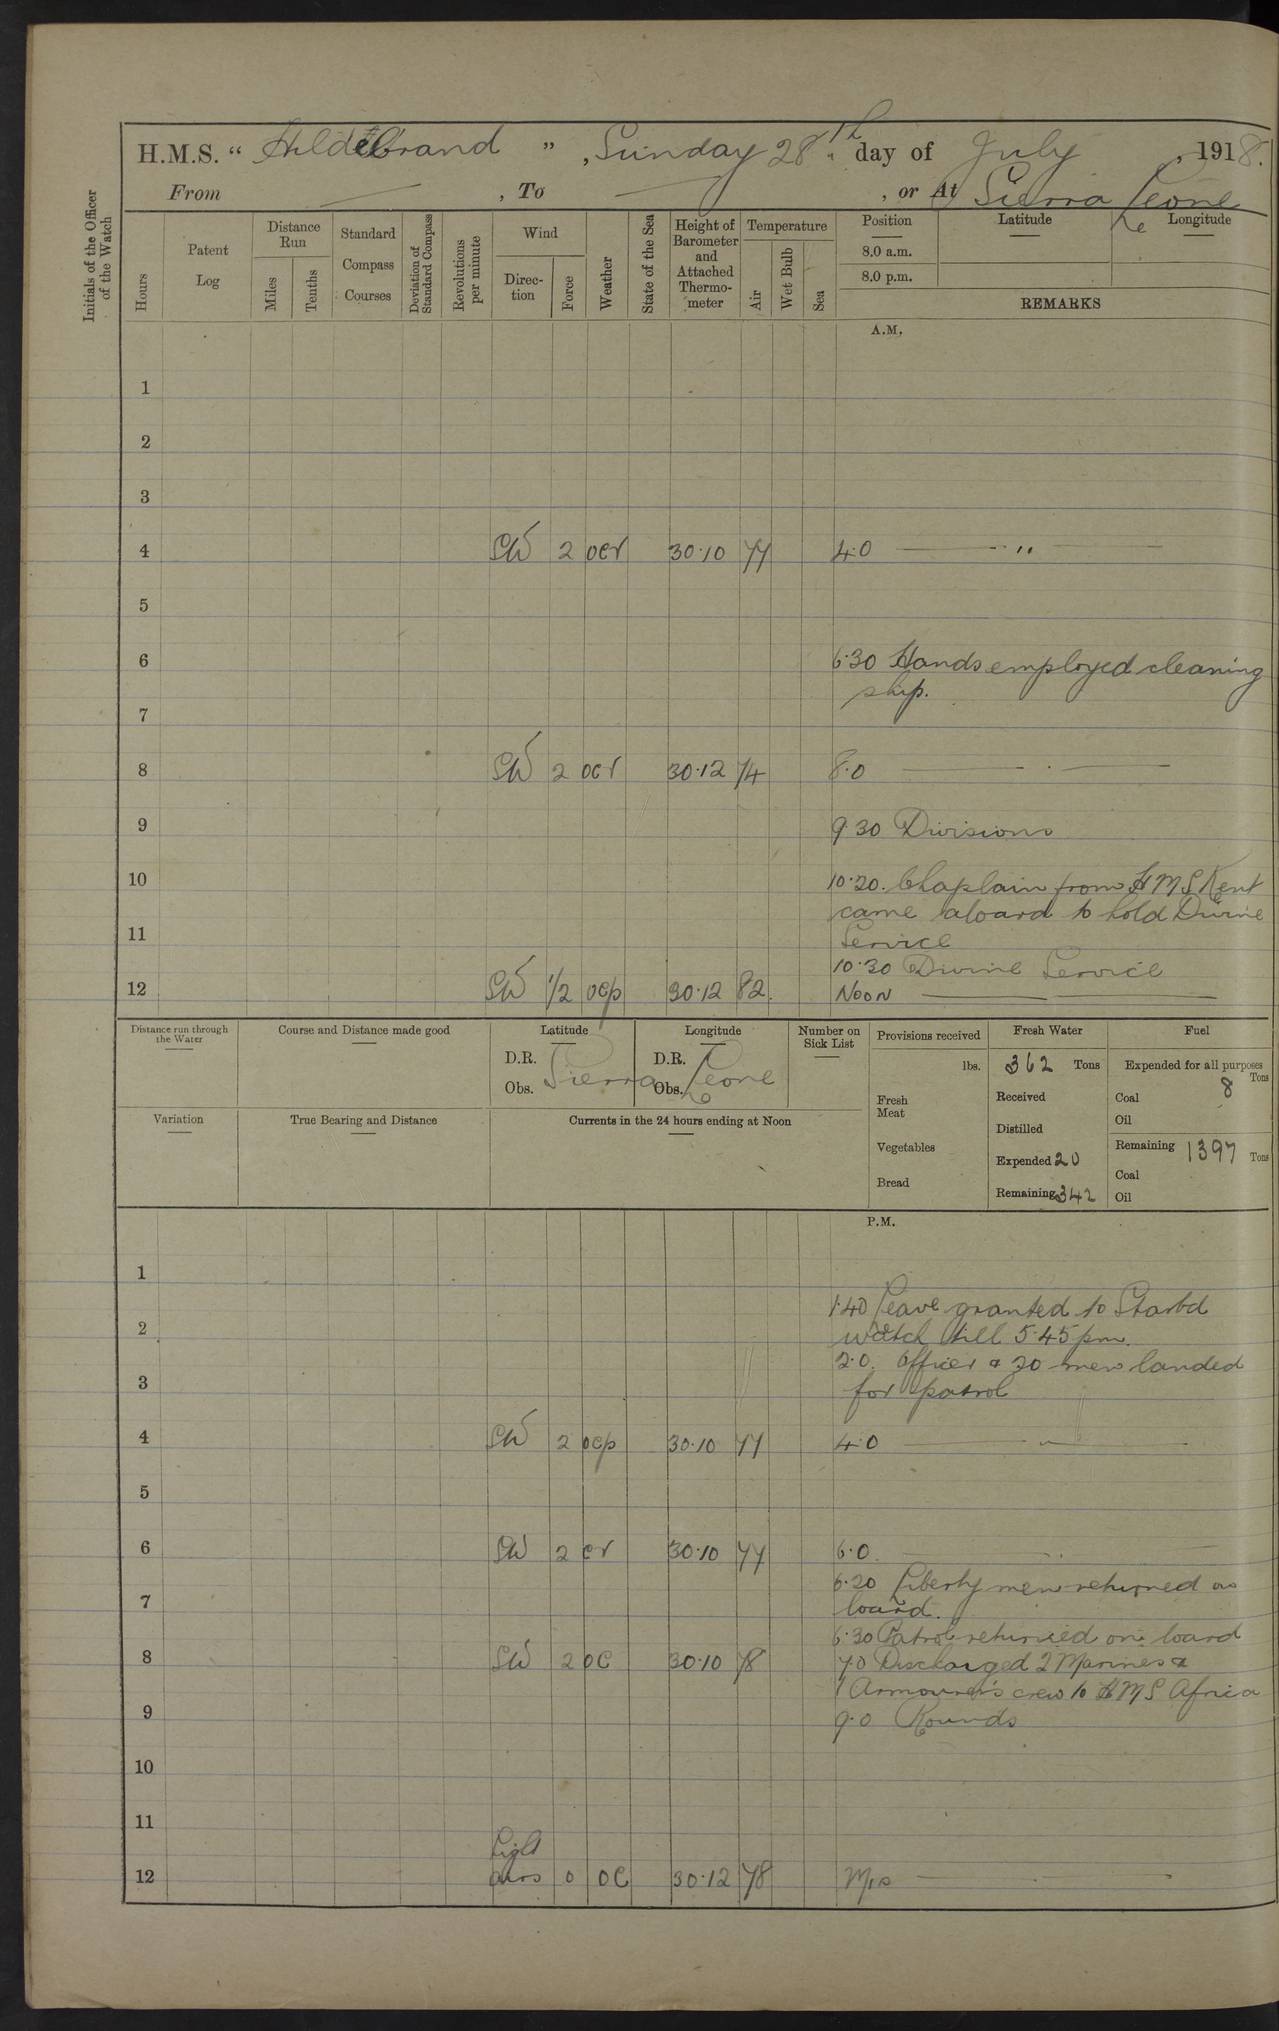 H.M.S. " Hildebrand ", Sunday 28th day of July, 1918.
From — , To — , or At Sierra Leone
Initials of the Officer of the Watch
Hours
Patent Log
Distance Run
Miles
Tenths
Standard Compass Courses
Deviation of Standard Compass
Revolutions per minute
Wind
Direc-tion
Force
Weather
State of the Sea
Height of Barometer and Attached Thermo-meter
Temperature
Air
Wet Bulb
Sea
Position
Latitude
Longitude
8.0 a.m.
8.0 p.m.
REMARKS
A.M.
1
2
3
4 SW 2 ocr 30.10 77 4.0 — " —
5
6 6.30 Hands employed cleaning
ship.
7
8 SW 2 ocr 30.12 74 8.0 — . —
9 9.30 Divisions
10 10.20. Chaplain from HMS Kent
came aboard to hold Divine
11 Service
10.30 Divine Service
12 SW 1/2 ocp 30.12 82. Noon — —
Distance run through the Water
Course and Distance made good
Latitude
Longitude
D.R.
Obs.
D.R.
Obs.
Sierra Leone
Number on Sick List
Provisions received
lbs.
Fresh Meat
Vegetables
Bread
Fresh Water
362 Tons
Received
Distilled
Expended 20
Remaining 342
Fuel
Expended for all purposes
8 Tons
Coal
Oil
Remaining 1397 Tons
Coal
Oil
Variation
True Bearing and Distance
Currents in the 24 hours ending at Noon
P.M.
1
1.40 Leave granted to Starbd
2 watch till 5.45 pm.
2.0. Officer & 20 men landed
3 for patrol
4 SW 2 ocp 30.10 77 4.0 — " —
5
6 SW 2 cr 30.10 77 6.0
6.20 Liberty men returned on
7 board.
6.30 Patrol returned on board
8 SW 2 oc 30.10 78 7.0 Discharged 2 Marines &
1 Armourer's crew to HMS Africa
9 9.0 Rounds
10
11
Light
12 airs 0 oc 30.12 78 — . —